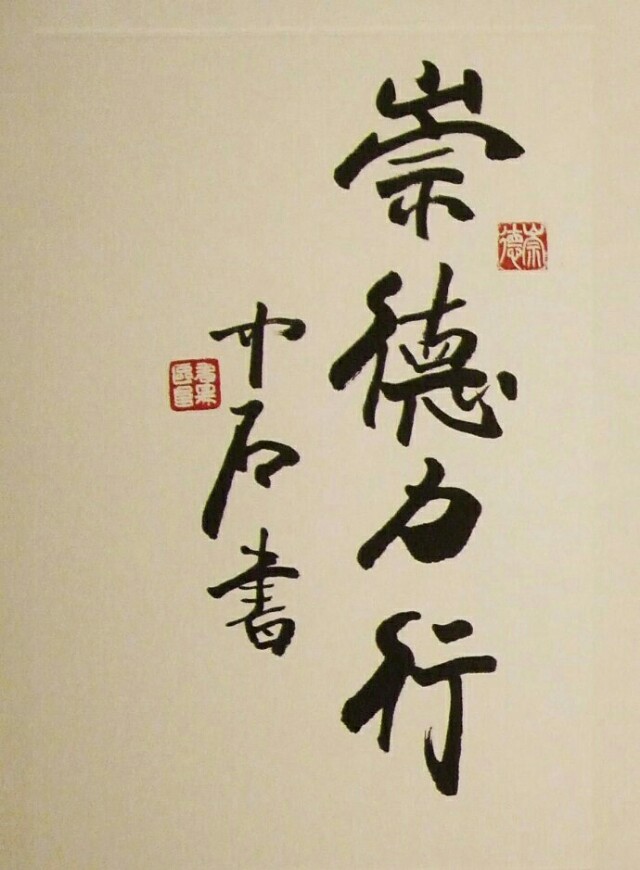 崇德力行
崇德
中石書